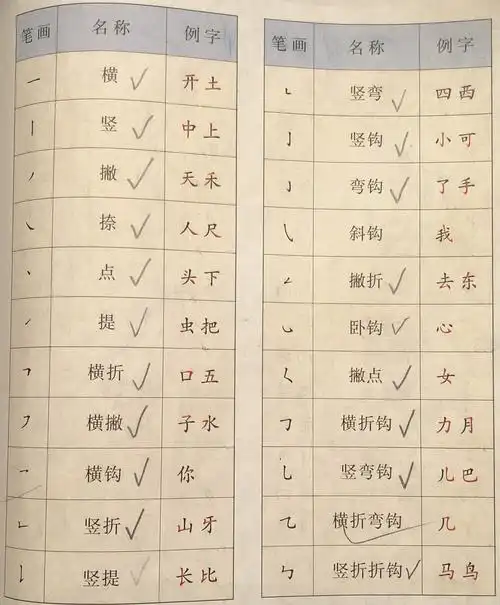 笔画 名称 例字
㇐ 横 开 土
㇑ 竖 中 上
㇒ 撇 天 禾
㇏ 捺 人 尺
㇔ 点 头 下
㇀ 提 虫 把
㇕ 横折 口 五
㇇ 横撇 子 水
㇖ 横钩 你
㇗ 竖折 山 牙
㇙ 竖提 长 比
笔画 名称 例字
㇄ 竖弯 四 西
㇚ 竖钩 小 可
㇁ 弯钩 了 手
㇂ 斜钩 我
㇜ 撇折 去 东
㇃ 卧钩 心
㇛ 撇点 女
㇆ 横折钩 力 月
㇟ 竖弯钩 儿 巴
㇈ 横折弯钩 几
㇉ 竖折折钩 马 鸟